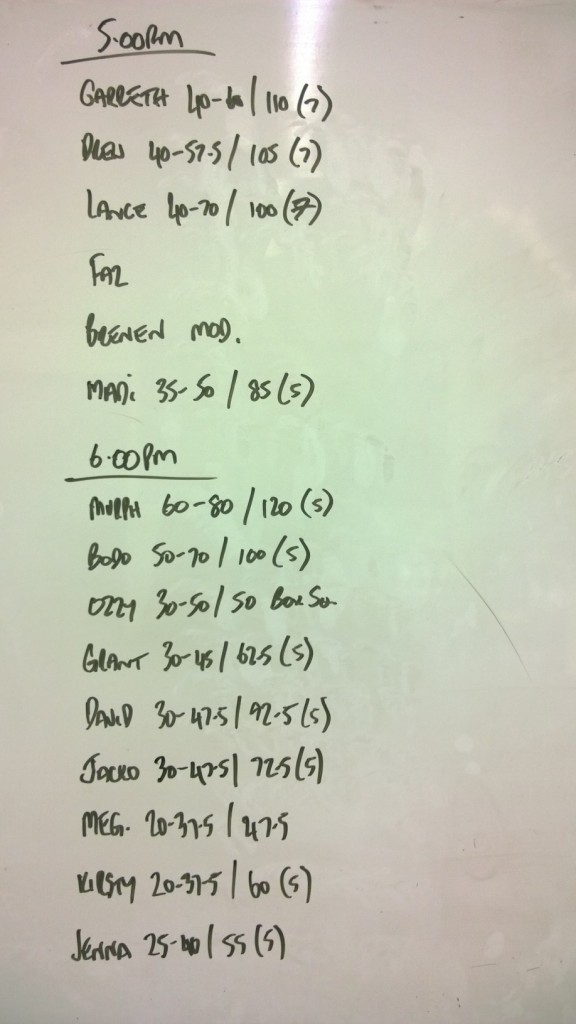 5.00PM
GARRETH 40-60/110 (7)
DREW 40-57.5/105 (7)
LANCE 40-70/100 (7)
FAZ
BRENEN MOD.
MADi 35-50/85(5)
6.00PM
MURPH 60-80/120 (5)
BODO 50-70/100 (5)
OZZY 30-50/50 BOX
GRANT 30-45/62.5(5)
DAVID 30-47.5/92.5(5)
JACKO 30-42.5/72.5(5)
MEG. 20-37.5/47.5
KIRSTY 20-37.5/60 (5)
JENNA 25-40/55 (5)